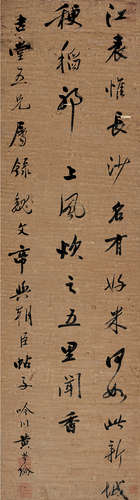 江表惟長沙名有好米何如此新城
秔稻耶上風炊之五里聞香
吉堂五兄屬錄魏文帝與朝臣帖子吟川黃